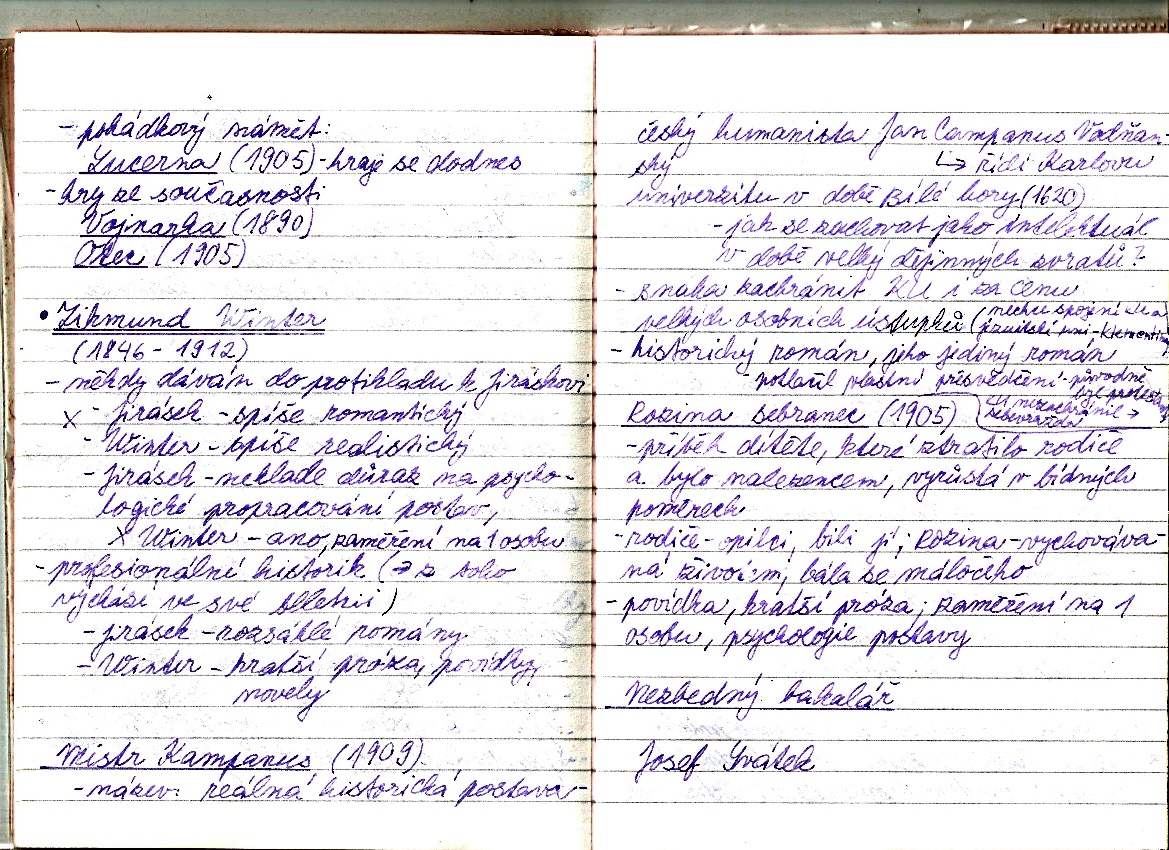 - pohádkový námět:
Lucerna (1905) - hraje se dodnes
- hry ze současnosti:
Vojnarka (1890)
Otec (1905)
• Zikmund Winter
(1846 - 1912)
- někdy dáván do protikladu k Jiráskovi
x - Jirásek - spíše romantický
- Winter - spíše realistický
- Jirásek - neklade důraz na psycho-
logické propracování postav,
x Winter - ano, zaměření na 1 osobu
- profesionální historik (→ z toho
vychází ve své beletrii)
- Jirásek - rozsáhlé romány
- Winter - kratší próza, povídky,
novely
Mistr Kampanus (1909)
- název: reálná historická postava -
český humanista Jan Campanus Vodňan-
ský
↳ řídí Karlovu
univerzitu v době Bílé hory (1620)
- jak se zachovat jako intelektuál
v době velký dějinných zvratů?
- snaha zachránit KU i za cenu
velkých osobních ústupků (nechce spojení KU a
jezuitské uni - Klementin
- historický román, jeho jediný román
potlačil vlastní přesvědčení - původně
byl protestant
KU nezachránil →
sebevražda
Rozina sebranec (1905)
- příběh dítěte, které ztratilo rodiče
a bylo nalezencem, vyrůstá v bídných
poměrech
- rodiče - opilci, bili ji; Rozina - vychováva-
ná živočišně, bála se máločeho
- povídka, kratší próza; zaměření na 1
osobu, psychologie postavy
Nezbedný bakalář
Josef Svátek